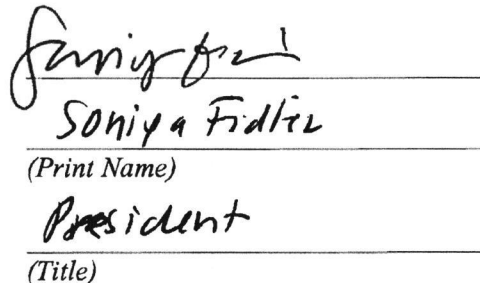 Soniya Fidler
(Print Name)
President
(Title)